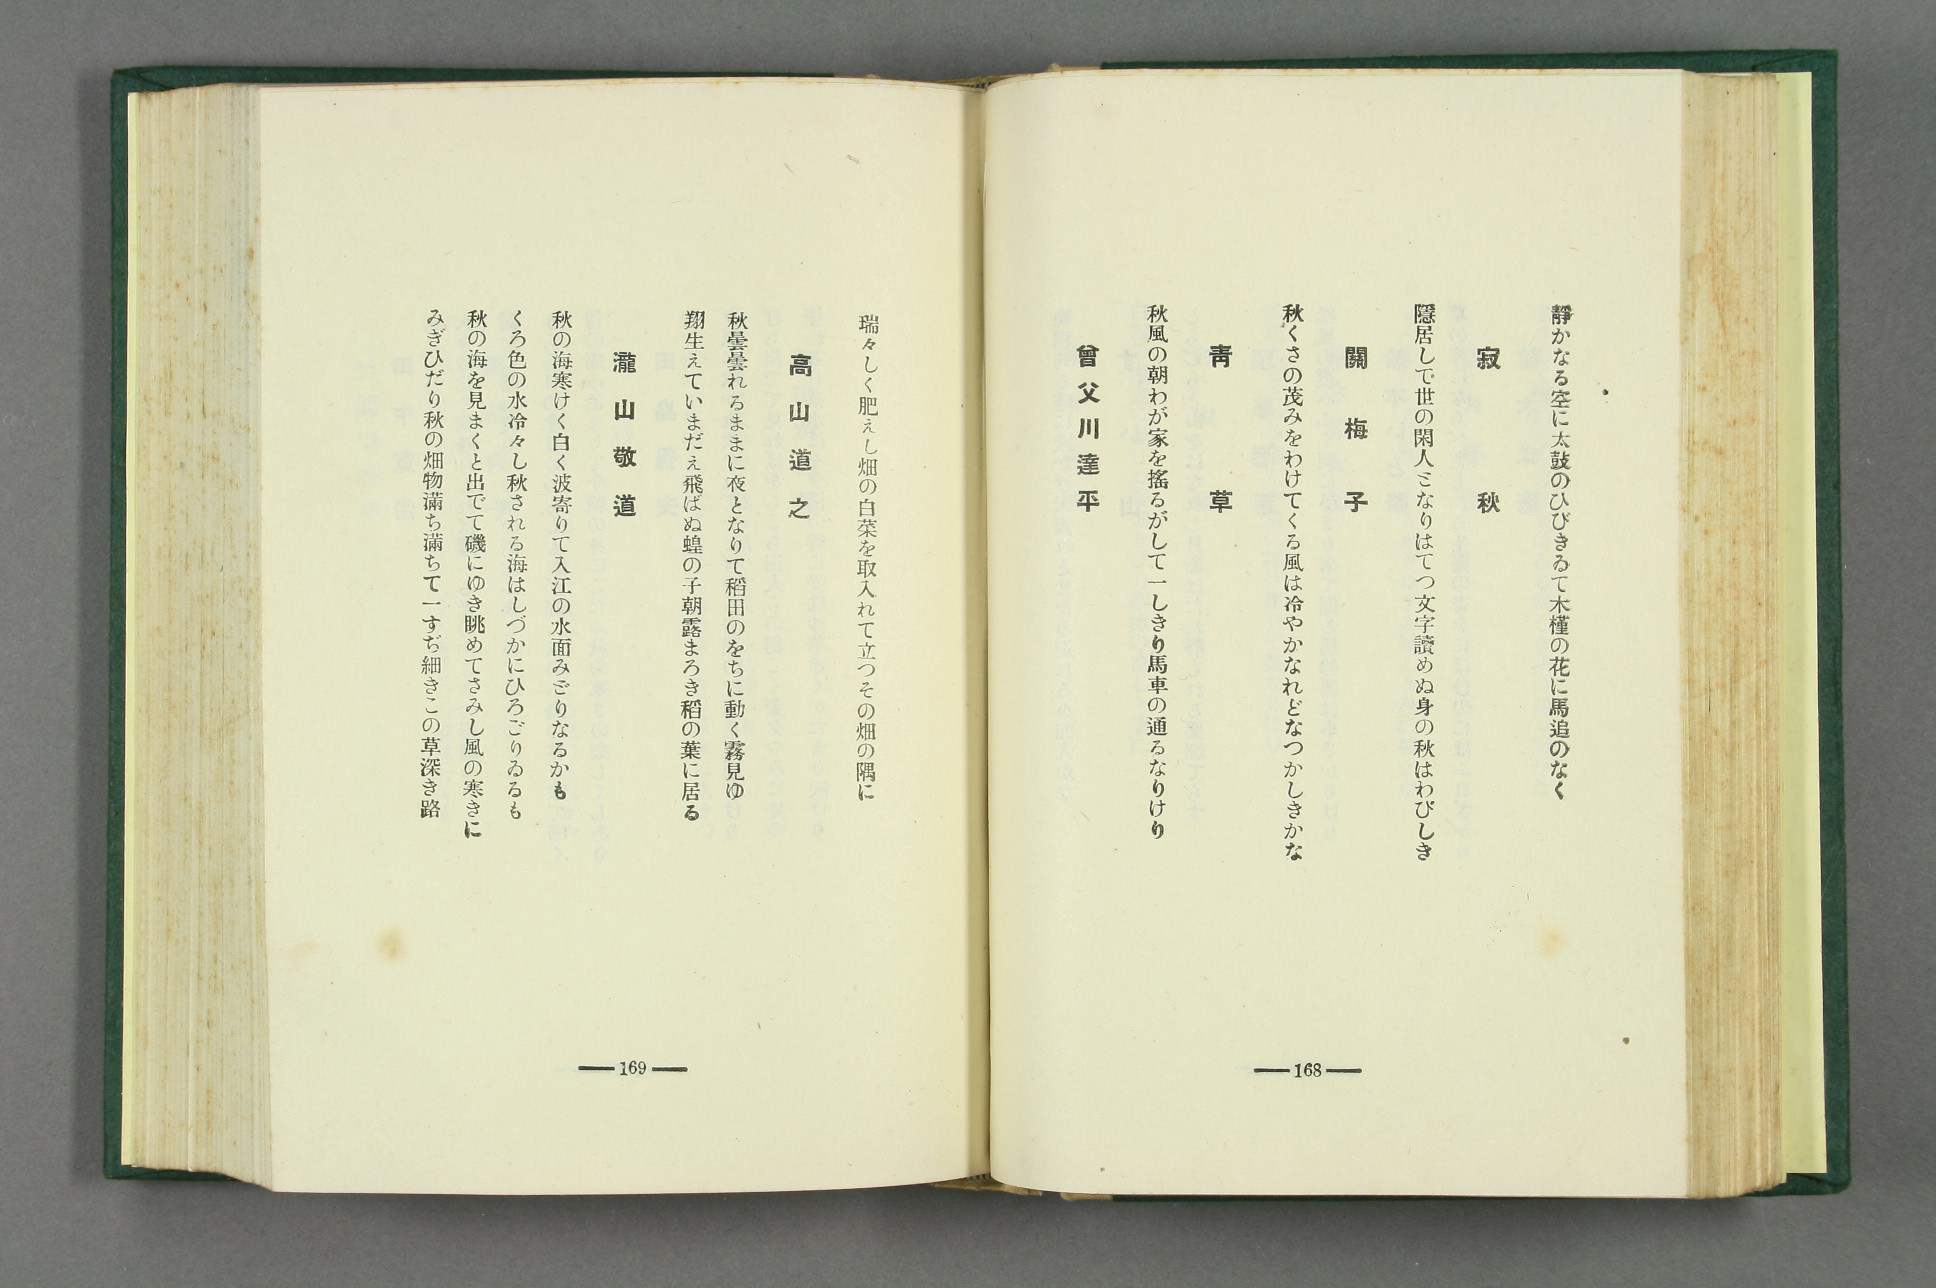 靜かなる空に太鼓のひびきゐて木槿の花に馬追のなく
寂秋
隱居して世の閑人となりはてつ文字讀めぬ身の秋はわびしき
關梅子
秋くさの茂みをわけてくる風は冷やかなれどなつかしきかな
靑草
秋風の朝わが家を搖るがして一しきり馬車の通るなりけり
曾父川達平
168
瑞々しく肥えし畑の白菜を取入れて立つその畑の隅に
高山道之
秋曇曇れるままに夜となりて稻田のをちに動く霧見ゆ
翔生えていまだえ飛ばぬ蝗の子朝露まろき稻の葉に居る
瀧山敬道
秋の海寒けく白く波寄りて入江の水面みごりなるかも
くろ色の水冷々し秋される海はしづかにひろごりゐるも
秋の海を見まくと出でて磯にゆき眺めてさみし風の寒きに
みぎひだり秋の畑物滿ち滿ちて一すぢ細きこの草深き路
169